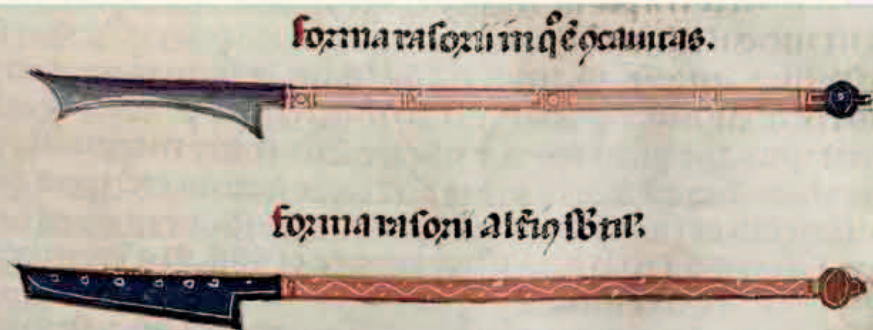 forma raſorii in qͦ ē ꝯcauitas.
forma raſorii alt̃iꝰ ſb̃til̕.